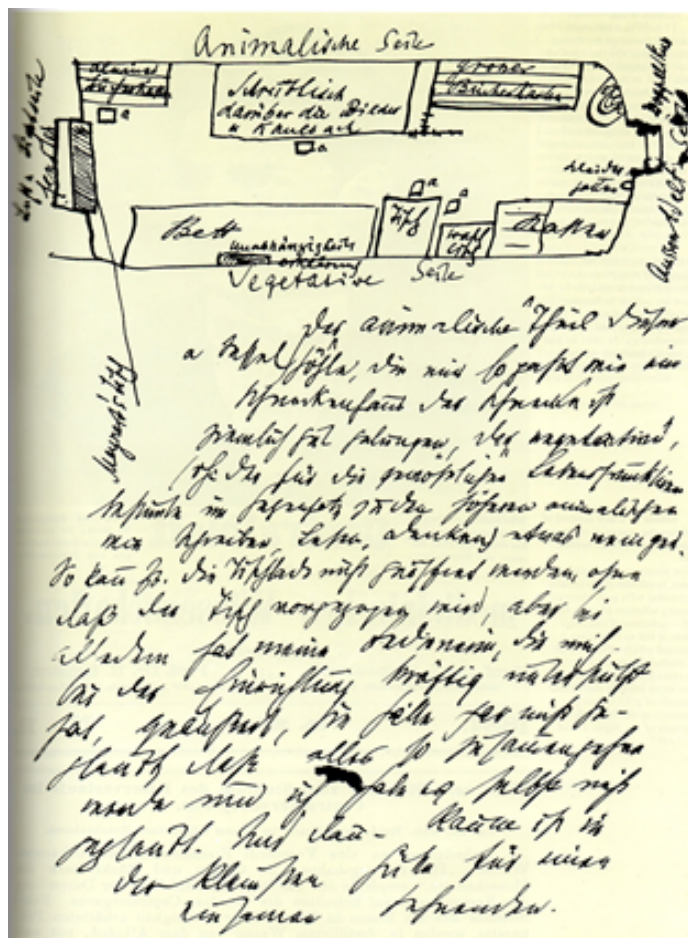 Animalische Seite
kleiner
großer
Bücherkasten
Schreibtisch
darüber die Bilder
a
a
Kleider
Aussen Welt
Bett
Unabhängigkeits
erklärung
Tisch
a
a
Wasch
tisch
Kasten
Vegetative Seite
Der animalische Theil dieser
a Sessel Höhle, die mir so paßt wie ein
Schneckenhaus der Schnecke ist
ziemlich gut gelungen, der vegetative,
(d.h. der für die gewöhnlichen Lebensfunktionen
bestimmte im Gegensatz zu den höheren animalischen
wie Schreiben, Lesen, Denken) etwas weniger.
So kann zB. die Tischlade nicht geöffnet werden, ohne
daß der Tisch weggezogen wird, aber bei
alledem hat meine die mich
bei der Einrichtung kräftig unterstützt
hat, geäußert, sie hätte gar nicht ge-
glaubt daß alles so zusammengehen
werde und ich habe es selbst nicht
geglaubt. Und dann - Raum ist in
der kleinsten Hütte für einen
einsamen Sehnenden.